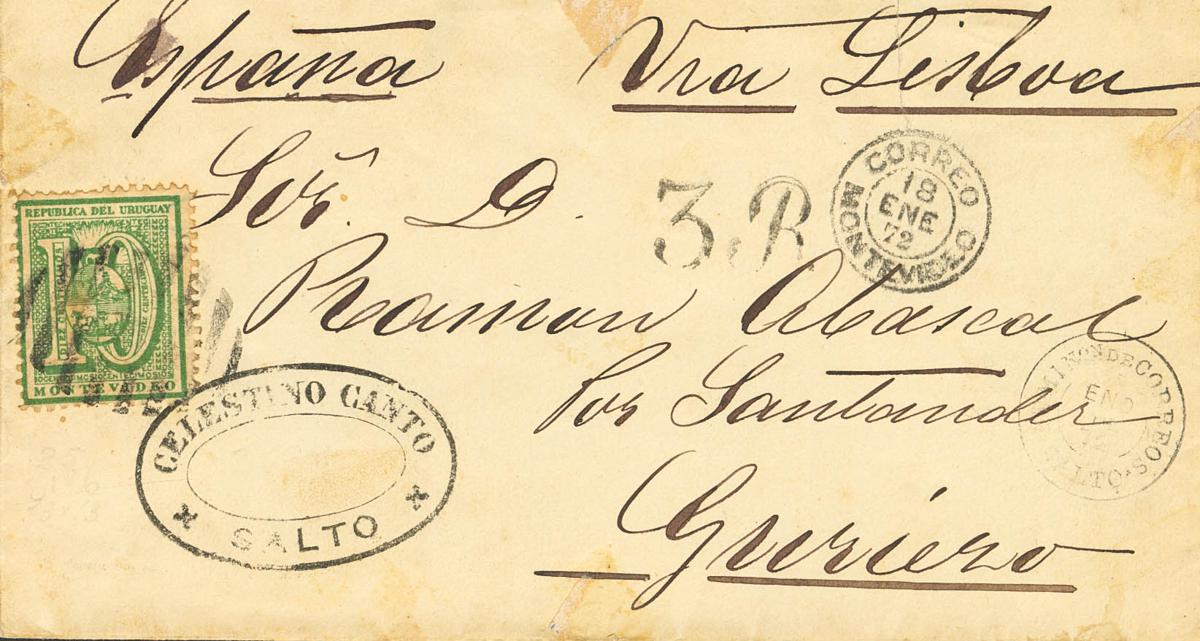 España Via Lisboa
Sor. D.
3. R
CORREO MONTEVIDEO
18
ENE
72
REPUBLICA DEL URUGUAY
10
MONTEVIDEO
Ramon Abascal
por Santander
Guriezo
CELESTINO CANTO
SALTO
DE CORREOS · SALTO
ENO